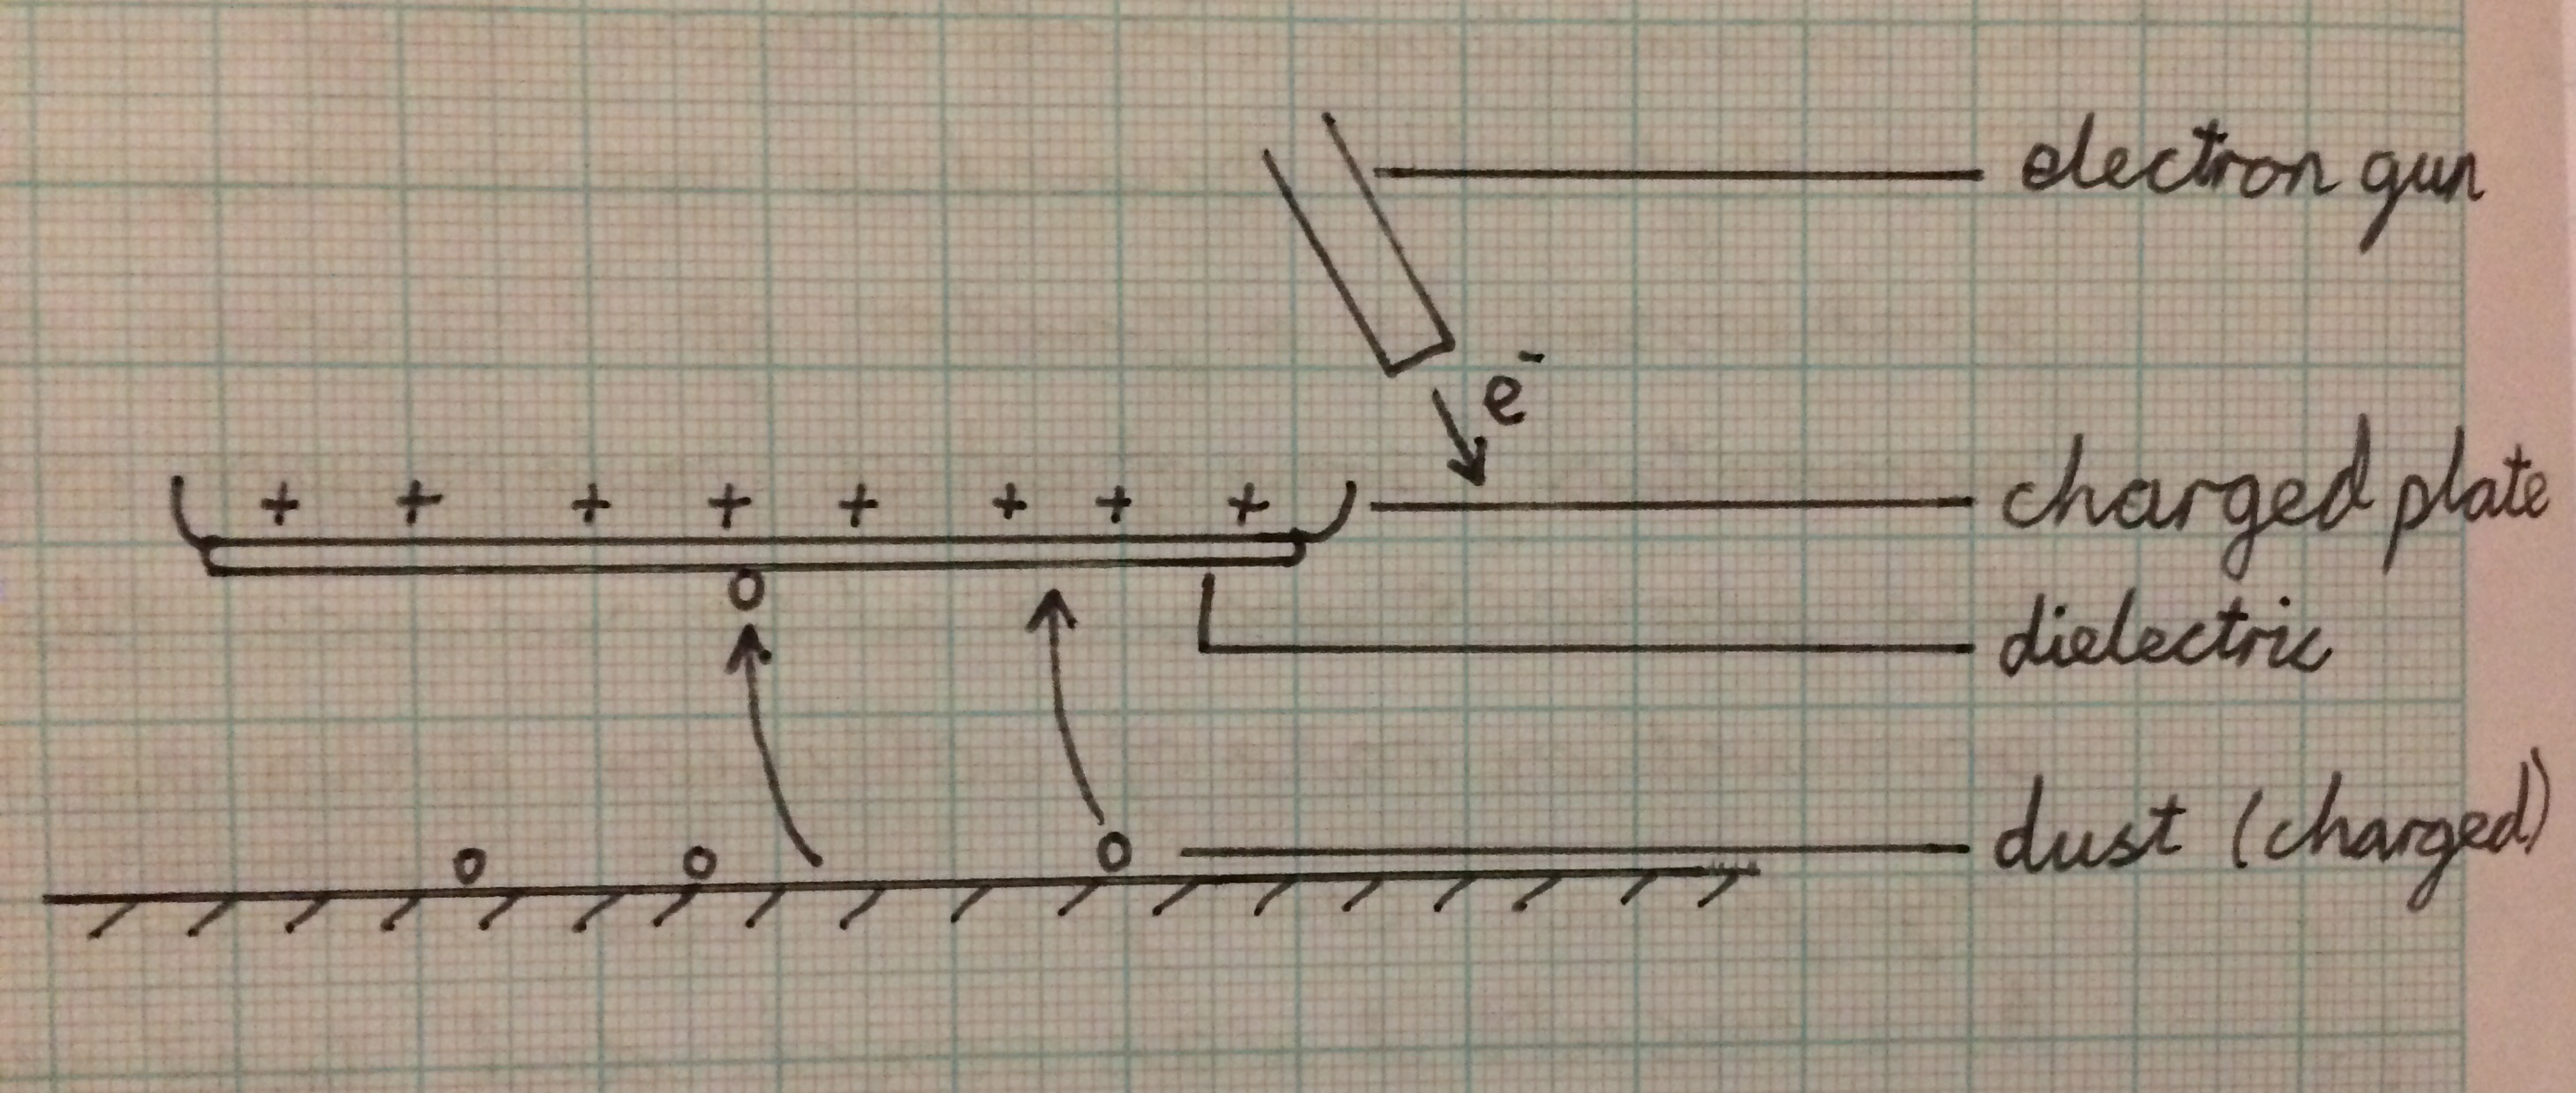 electron gun
e⁻
+ + + + + + + +
charged plate
dielectric
dust (charged)